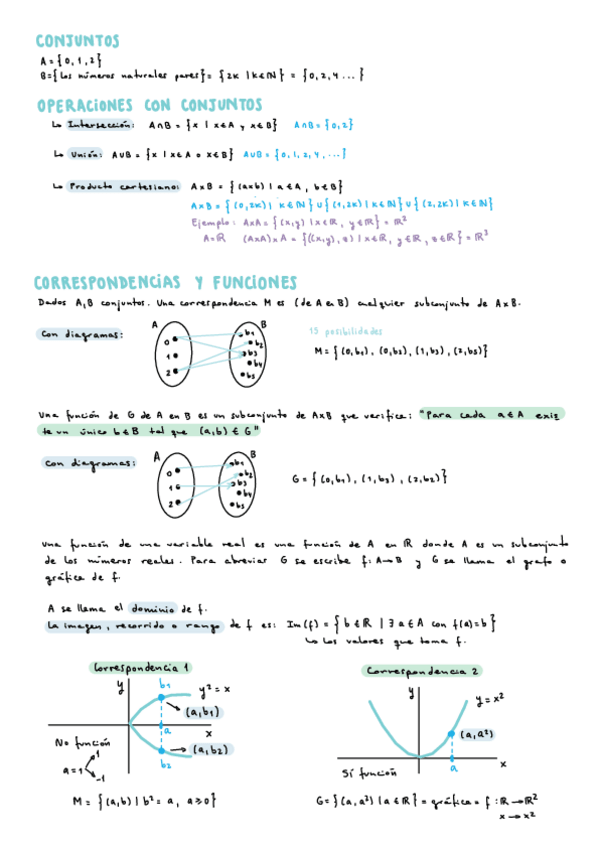 CONJUNTOS
A = {0,1,2}
B = {los números naturales pares} = {2k | k∈ℕ} = {0,2,4...}
OPERACIONES CON CONJUNTOS
↳ Intersección: A∩B = {x | x∈A y x∈B} A∩B = {0,2}
↳ Unión: A∪B = {x | x∈A o x∈B} A∪B = {0,1,2,4,...}
↳ Producto cartesiano: AxB = {(axb) | a∈A, b∈B}
AxB = {(0,2k) | k∈ℕ} ∪ {(1,2k) | k∈ℕ} ∪ {(2,2k) | k∈ℕ}
Ejemplo: AxA = {(x,y) | x∈ℝ, y∈ℝ} = ℝ²
A=ℝ (AxA)xA = {((x,y),z) | x∈ℝ, y∈ℝ, z∈ℝ} = ℝ³
CORRESPONDENCIAS Y FUNCIONES
Dados A,B conjuntos. Una correspondencia M es (de A en B) cualquier subconjunto de AxB.
Con diagramas: A B 15 posibilidades
0 1 2 b1 b2 b3 b4 b5
M = {(0,b1), (0,b3), (1,b3), (2,b3)}
Una función de G de A en B es un subconjunto de AxB que verifica: "Para cada a∈A exis
te un único b∈B tal que (a,b) ∈ G"
Con diagramas: A B
0 1 2 b1 b2 b3 b4 b5
G = {(0,b1), (1,b3), (2,b2)}
Una función de una variable real es una función de A en ℝ donde A es un subconjunto
de los números reales. Para abreviar G se escribe f: A→B y G se llama el grafo o
gráfica de f.
A se llama el dominio de f.
La imagen, recorrido o rango de f es: Im(f) = {b∈ℝ | ∃ a∈A con f(a)=b}
↳ Los valores que toma f.
Correspondencia 1
y b1 y²=x
(a,b1)
a x
No función
a=1 1 -1
(a,b2)
b2
M = {(a,b) | b² = a, a≥0}
Correspondencia 2
y y=x²
(a,a²)
a x
Sí función
G = {(a,a²) | a∈ℝ} = gráfica = f: ℝ→ℝ²
x→x²